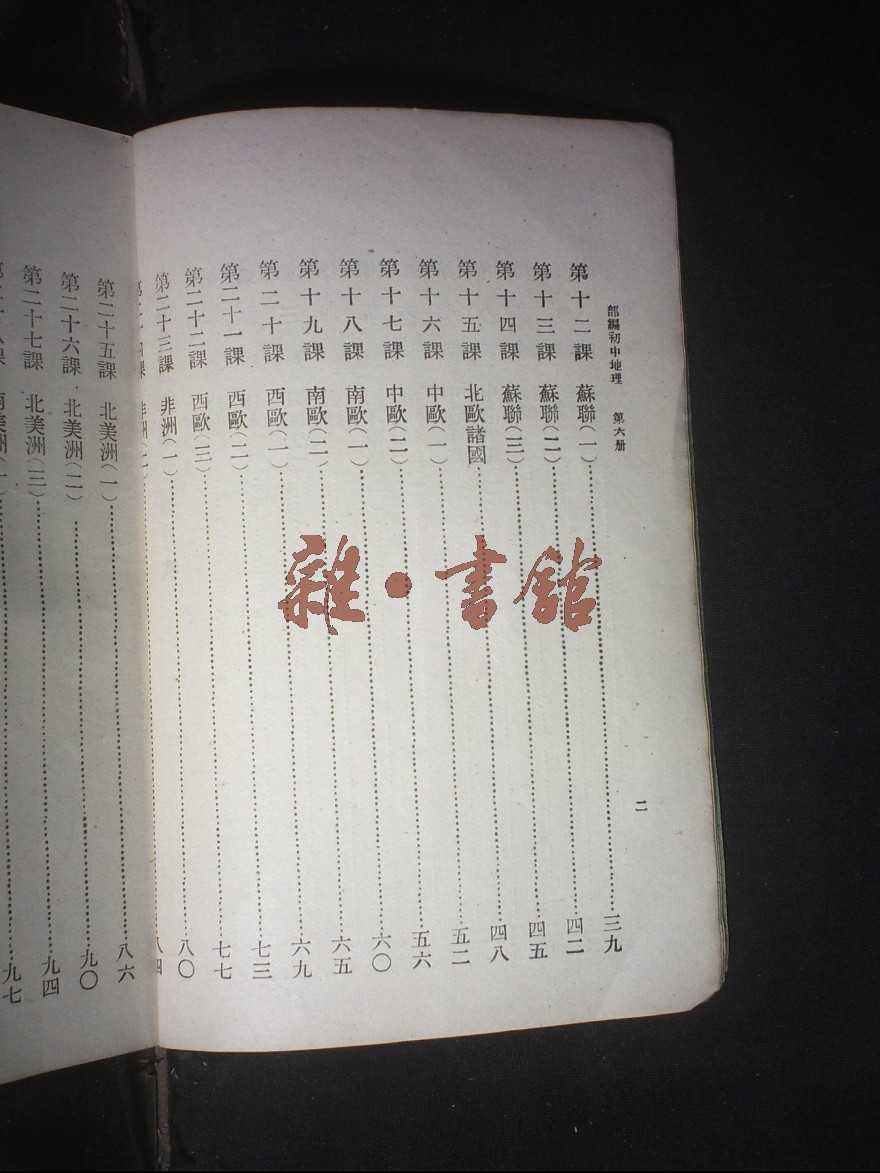 部編初中地理 第六册 二
第十二課 蘇聯(一)……三九
第十三課 蘇聯(二)……四二
第十四課 蘇聯(三)……四五
第十五課 北歐諸國……四八
第十六課 中歐(一)……五二
第十七課 中歐(二)……五六
第十八課 南歐(一)……六〇
第十九課 南歐(二)……六五
第二十課 西歐(一)……六九
第二十一課 西歐(二)……七三
第二十二課 西歐(三)……七七
第二十三課 非洲(一)……八〇
課 洲(二)……八四
第二十五課 北美洲(一)……八六
第二十六課 北美洲(二)……九〇
第二十七課 北美洲(三)……九四
課 南美洲(一)……九七
雜•書館